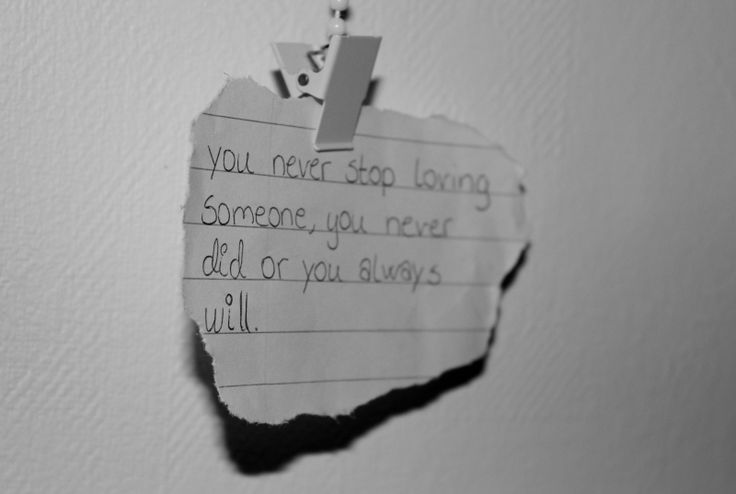 you never stop loving
someone, you never
did or you always
will.